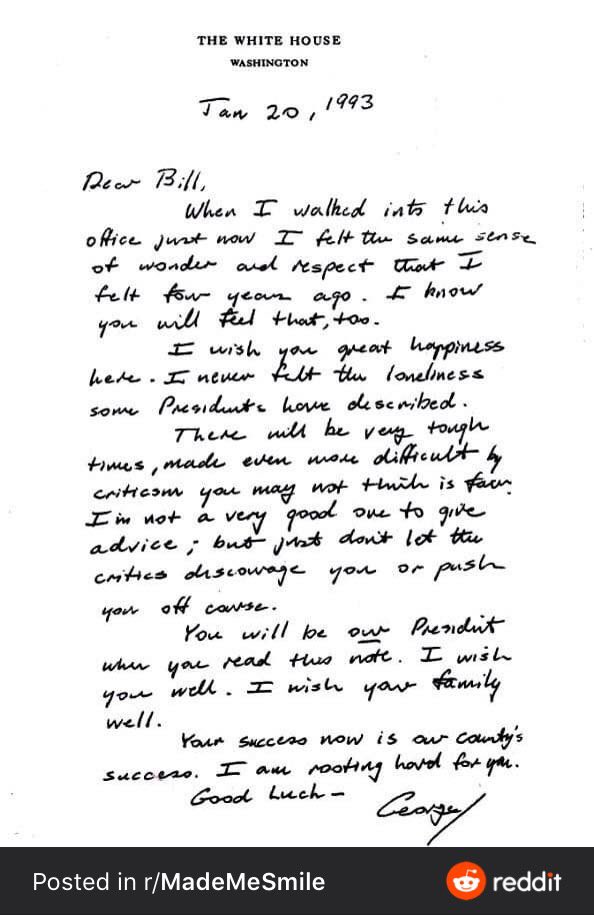 THE WHITE HOUSE
WASHINGTON
Jan 20, 1993
Dear Bill,
When I walked into this
office just now I felt the same sense
of wonder and respect that I
felt four years ago. I know
you will feel that, too.
I wish you great happiness
here. I never felt the loneliness
some Presidents have described.
There will be very tough
times, made even more difficult by
criticism you may not think is fair.
I'm not a very good one to give
advice; but just don't let the
critics discourage you or push
you off course.
You will be our President
when you read this note. I wish
you well. I wish your family
well.
Your success now is our country's
success. I am rooting hard for you.
Good Luck -
George
Posted in r/MadeMeSmile
reddit